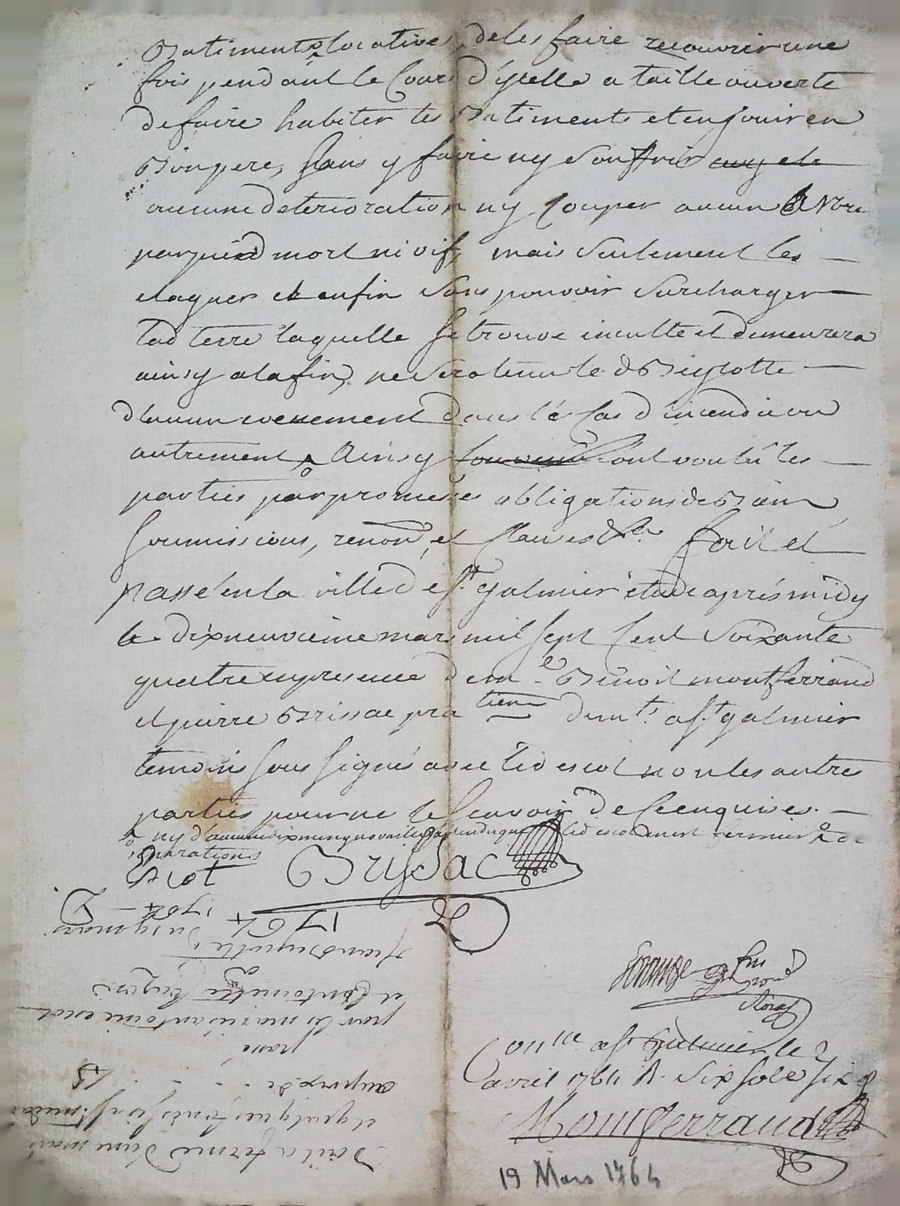 Batiments locatives, de les faire recouvrir une
fois pendant le Cours d'ycelle a taille ouverte
de faire habiter les Batiments et en jouir en
Bon pere, sans y faire ny souffrir
aucune deterioration ny couper aucun Arbre
par pied mort ni vif, mais seulement les
elaguer et enfin sans pouvoir surcharger
lad terre laquelle se trouve inculte et demeurera
ainsy a la fin, ne sera tenu le d
d'aucun evenement dans le Cas d'incendie ou
autrement Ainsy l'ont voulu les
parties par promesses obligations de Biens
soumissions, renon, et Clauses fait et
passé en la ville de st galmier etude aprés midy
le dixneuvieme mars mil sept Cent soixante
quatre en presence de m Benoit montferrand
et pierre Brissac praticien demt a st galmier
temoins sous signés avec led escot non les autres
parties pour ne le scavoir de Ce enquises.
ny d'aucune
reparations
Escot Brissac
1764
Conlle a st Galmier le 2
avril 1764 R. six sols six d
Montferrand
19 Mars 1764
Bail a ferme d'une mais
et quelque fonds
au prix de 48
passé
par les mariés antoine escot
et antoinette
du 19 mars
1764